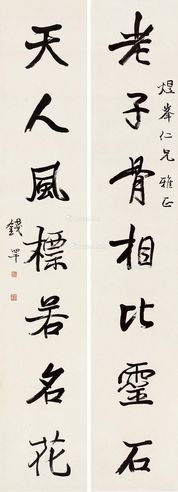 老子骨相比靈石
煜峯仁兄雅正
天人風標若名花
錢罕